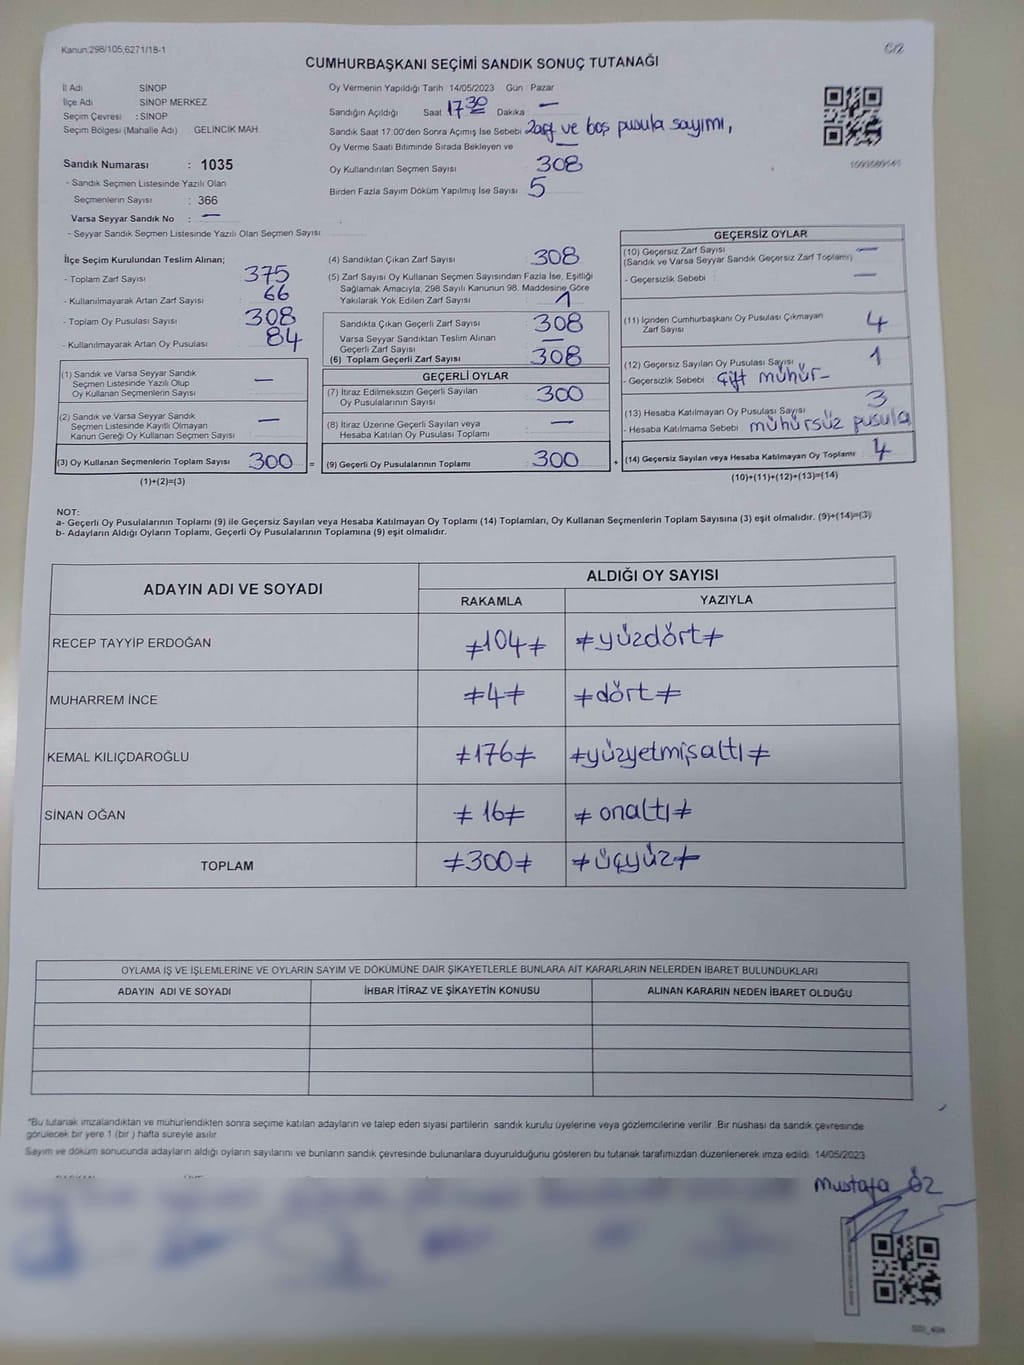 Kanun;298/105,6271/18-1
C/2
CUMHURBAŞKANI SEÇİMİ SANDIK SONUÇ TUTANAĞI
İl Adı SİNOP
İlçe Adı SİNOP MERKEZ
Seçim Çevresi : SİNOP
Seçim Bölgesi (Mahalle Adı) : GELİNCİK MAH.
Sandık Numarası : 1035
- Sandık Seçmen Listesinde Yazılı Olan
Seçmenlerin Sayısı : 366
Varsa Seyyar Sandık No : —
- Seyyar Sandık Seçmen Listesinde Yazılı Olan Seçmen Sayısı
Oy Vermenin Yapıldığı Tarih 14/05/2023 Gün : Pazar
Sandığın Açıldığı Saat 17 30 Dakika : —
Sandık Saat 17:00'den Sonra Açımış İse Sebebi Zarf ve boş pusula sayımı,
Oy Verme Saati Bitiminde Sırada Bekleyen ve —
Oy Kullandırılan Seçmen Sayısı 308
Birden Fazla Sayım Döküm Yapılmış İse Sayısı 5
İlçe Seçim Kurulundan Teslim Alınan;
- Toplam Zarf Sayısı 375
- Kullanılmayarak Artan Zarf Sayısı 66
- Toplam Oy Pusulası Sayısı 308
- Kullanılmayarak Artan Oy Pusulası 84
(1) Sandık ve Varsa Seyyar Sandık
Seçmen Listesinde Yazılı Olup —
Oy Kullanan Seçmenlerin Sayısı
(2) Sandık ve Varsa Seyyar Sandık
Seçmen Listesinde Kayıtlı Olmayan —
Kanun Gereği Oy Kullanan Seçmen Sayısı
(3) Oy Kullanan Seçmenlerin Toplam Sayısı 300 =
(1)+(2)=(3)
(4) Sandıktan Çıkan Zarf Sayısı 308
(5) Zarf Sayısı Oy Kullanan Seçmen Sayısından Fazla İse, Eşitliği
Sağlamak Amacıyla, 298 Sayılı Kanunun 98. Maddesine Göre
Yakılarak Yok Edilen Zarf Sayısı 1
Sandıkta Çıkan Geçerli Zarf Sayısı 308
Varsa Seyyar Sandıktan Teslim Alınan —
Geçerli Zarf Sayısı
(6) Toplam Geçerli Zarf Sayısı 308
GEÇERLİ OYLAR
(7) İtiraz Edilmeksizin Geçerli Sayılan 300
Oy Pusulalarının Sayısı
(8) İtiraz Üzerine Geçerli Sayılan veya —
Hesaba Katılan Oy Pusulası Toplamı
(9) Geçerli Oy Pusulalarının Toplamı 300 +
GEÇERSİZ OYLAR
(10) Geçersiz Zarf Sayısı —
(Sandık ve Varsa Seyyar Sandık Geçersiz Zarf Toplamı)
- Geçersizlik Sebebi —
(11) İçinden Cumhurbaşkanı Oy Pusulası Çıkmayan 4
Zarf Sayısı
(12) Geçersiz Sayılan Oy Pusulası Sayısı 1
- Geçersizlik Sebebi : Çift mühür-
(13) Hesaba Katılmayan Oy Pusulası Sayısı 3
- Hesaba Katılmama Sebebi : mühürsüz pusula
(14) Geçersiz Sayılan veya Hesaba Katılmayan Oy Toplamı 4
(10)+(11)+(12)+(13)=(14)
NOT:
a- Geçerli Oy Pusulalarının Toplamı (9) ile Geçersiz Sayılan veya Hesaba Katılmayan Oy Toplamı (14) Toplamları, Oy Kullanan Seçmenlerin Toplam Sayısına (3) eşit olmalıdır. (9)+(14)=(3)
b- Adayların Aldığı Oyların Toplamı, Geçerli Oy Pusulalarının Toplamına (9) eşit olmalıdır.
ADAYIN ADI VE SOYADI
ALDIĞI OY SAYISI
RAKAMLA YAZIYLA
RECEP TAYYİP ERDOĞAN ≠104≠ ≠yüzdört≠
MUHARREM İNCE ≠4≠ ≠dört≠
KEMAL KILIÇDAROĞLU ≠176≠ ≠yüzyetmişaltı≠
SİNAN OĞAN ≠16≠ ≠onaltı≠
TOPLAM ≠300≠ ≠üçyüz≠
OYLAMA İŞ VE İŞLEMLERİNE VE OYLARIN SAYIM VE DÖKÜMÜNE DAİR ŞİKAYETLERLE BUNLARA AİT KARARLARIN NELERDEN İBARET BULUNDUKLARI
ADAYIN ADI VE SOYADI İHBAR İTİRAZ VE ŞİKAYETİN KONUSU ALINAN KARARIN NEDEN İBARET OLDUĞU
*Bu tutanak imzalandıktan ve mühürlendikten sonra seçime katılan adayların ve talep eden siyasi partilerin sandık kurulu üyelerine veya gözlemcilerine verilir .Bir nüshası da sandık çevresinde
görülecek bir yere 1 (bir ) hafta süreyle asılır
Sayım ve döküm sonucunda adayların aldığı oyların sayılarını ve bunların sandık çevresinde bulunanlara duyurulduğunu gösteren bu tutanak tarafımızdan düzenlenerek imza edildi. 14/05/2023
Mustafa Öz